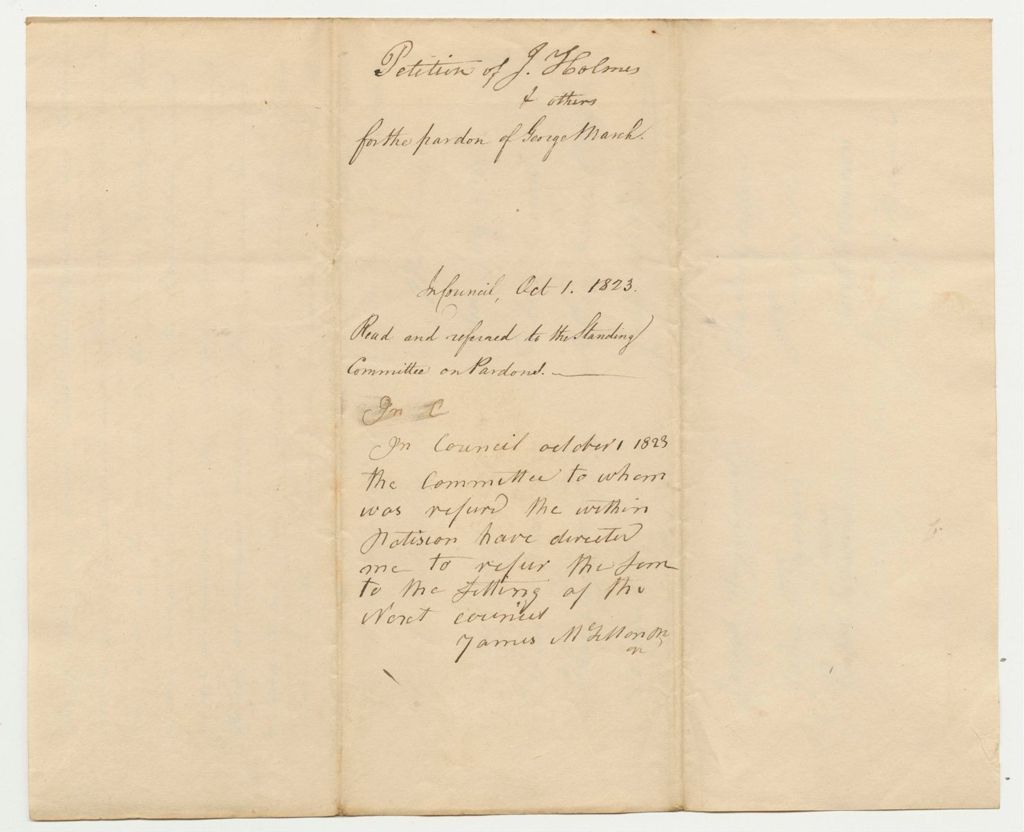 Petition of J. Holmes
& others
for the pardon of George March.
In Council, Oct 1. 1823.
Read and referred to the Standing
Committee on Pardons.
In C
In Council october 1 1823
the Committee to whom
was refurd the within
Patision have directed
me to refur the Sam
to the Sitting of the
Next council
James